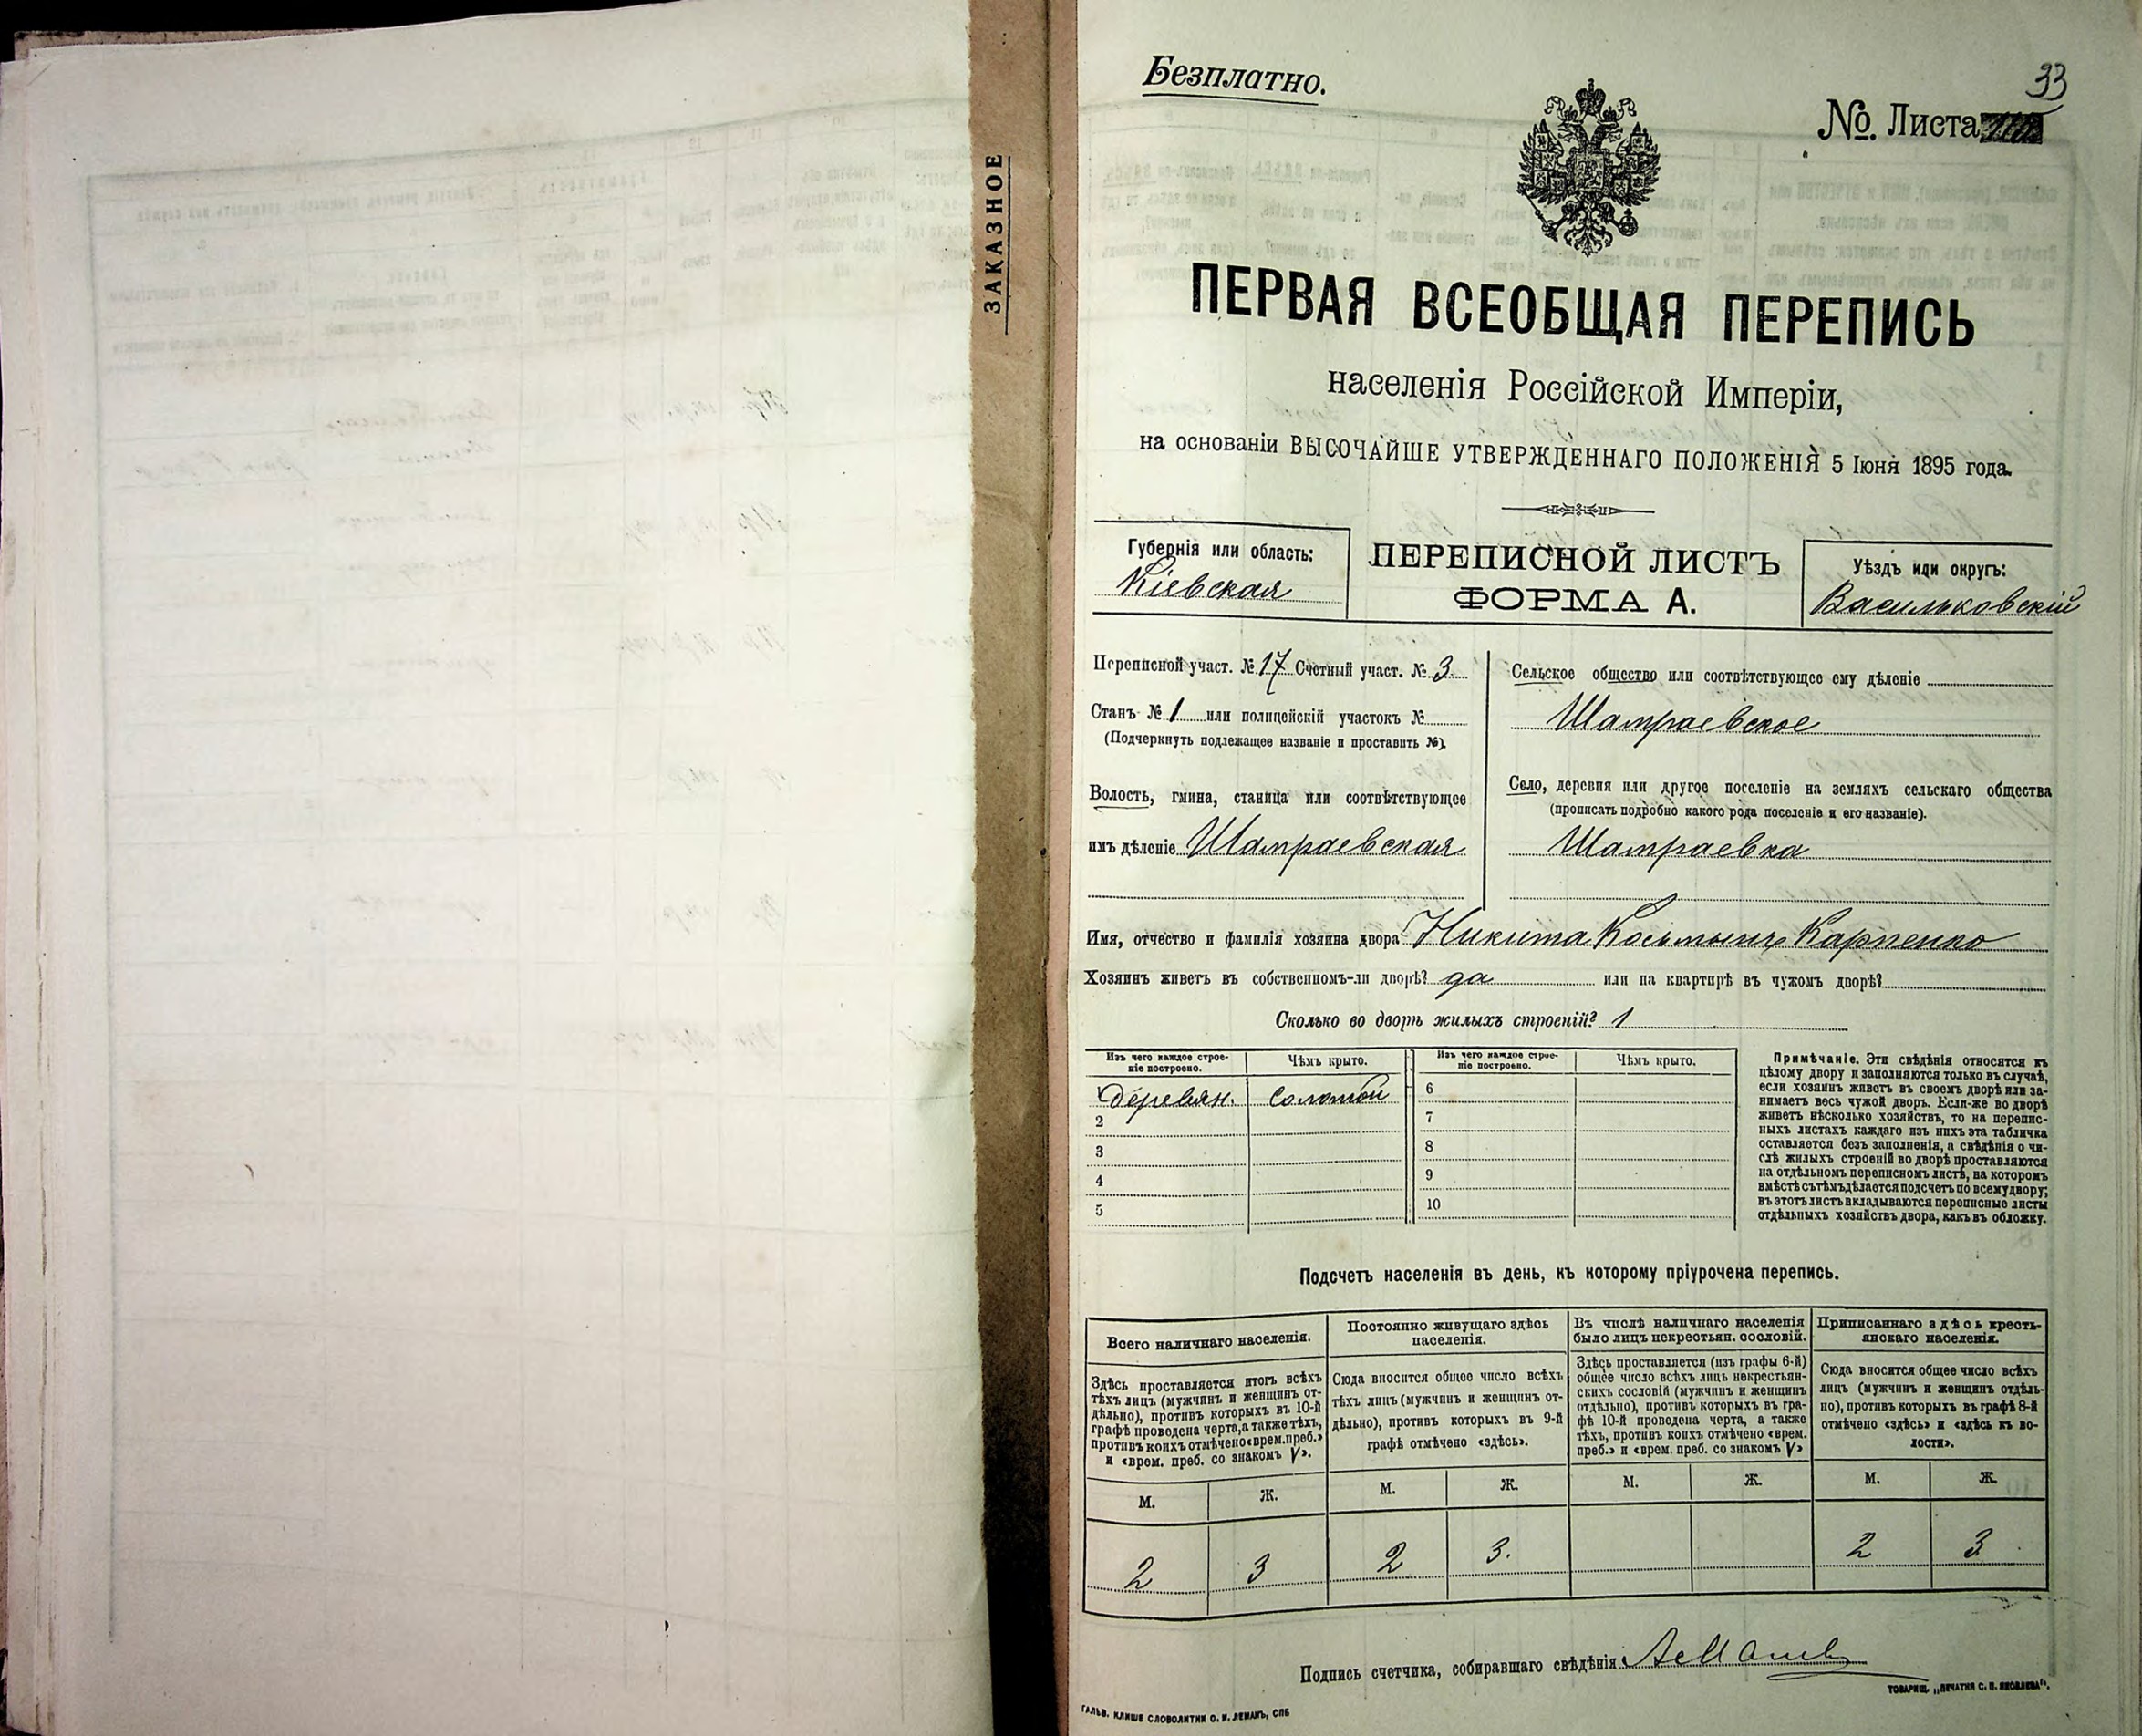 ЗАКАЗНОЕ
Безплатно.
33
№. Листа
ПЕРВАЯ ВСЕОБЩАЯ ПЕРЕПИСЬ
населенія Россійской Имперіи,
на основаніи ВЫСОЧАЙШЕ УТВЕРЖДЕННАГО ПОЛОЖЕНІЯ 5 Іюня 1895 года.
Губернія или область:
Кіевская
ПЕРЕПИСНОЙ ЛИСТЪ
ФОРМА А.
Уѣздъ или округъ:
Васильковскій
Переписной участ. № 17 Счетный участ. № 3
Станъ № 1 или полицейскій участокъ №
(Подчеркнуть подлежащее названіе и проставить №).
Волость, гмина, станица или соотвѣтствующее
имъ дѣленіе Шамраевская
Сельское общество или соотвѣтствующее ему дѣленіе
Шамраевское
Село, деревня или другое поселеніе на земляхъ сельскаго общества
(прописать подробно какого рода поселеніе и его названіе).
Шамраевка
Имя, отчество и фамилія хозяина двора Никита Косьминъ Карпенко
Хозяинъ живетъ въ собственномъ-ли дворѣ? да или на квартирѣ въ чужомъ дворѣ?
Сколько во дворѣ жилыхъ строеній? 1
Изъ чего каждое строе-
ніе построено.
Чѣмъ крыто.
Изъ чего каждое строе-
ніе построено.
Чѣмъ крыто.
деревян. соломой
2
3
4
5
6
7
8
9
10
Примѣчаніе. Эти свѣдѣнія относятся къ
цѣлому двору и заполняются только въ случаѣ,
если хозяинъ живетъ въ своемъ дворѣ или за-
нимаетъ весь чужой дворъ. Если-же во дворѣ
живетъ нѣсколько хозяйствъ, то на перепис-
ныхъ листахъ каждаго изъ нихъ эта табличка
оставляется безъ заполненія, а свѣдѣнія о чи-
слѣ жилыхъ строеній во дворѣ проставляются
на отдѣльномъ переписномъ листѣ, на которомъ
вмѣстѣ съ тѣмъ дѣлается подсчетъ по всему двору;
въ этотъ листъ вкладываются переписные листы
отдѣльныхъ хозяйствъ двора, какъ въ обложку.
Подсчетъ населенія въ день, къ которому пріурочена перепись.
Всего наличнаго населенія.
Здѣсь проставляется итогъ всѣхъ
тѣхъ лицъ (мужчинъ и женщинъ от-
дѣльно), противъ которыхъ въ 10-й
графѣ проведена черта, а также тѣхъ,
противъ коихъ отмѣчено «врем. преб.»
и «врем. преб. со знакомъ V».
М. Ж.
2 3
Постоянно живущаго здѣсь
населенія.
Сюда вносится общее число всѣхъ
тѣхъ лицъ (мужчинъ и женщинъ от-
дѣльно), противъ которыхъ въ 9-й
графѣ отмѣчено «здѣсь».
М. Ж.
2 3.
Въ числѣ наличнаго населенія
было лицъ некрестьян. сословій.
Здѣсь проставляется (изъ графы 6-й)
общее число всѣхъ лицъ некрестьян-
скихъ сословій (мужчинъ и женщинъ
отдѣльно), противъ которыхъ въ гра-
фѣ 10-й проведена черта, а также
тѣхъ, противъ коихъ отмѣчено «врем.
преб.» и «врем. преб. со знакомъ V»
М. Ж.
Приписаннаго здѣсь кресть-
янскаго населенія.
Сюда вносится общее число всѣхъ
лицъ (мужчинъ и женщинъ отдѣль-
но), противъ которыхъ въ графѣ 8-й
отмѣчено «здѣсь» и «здѣсь къ во-
лости».
М. Ж.
2 3
Подпись счетчика, собиравшаго свѣдѣнія
ТОВАРИЩ. „ПЕЧАТНЯ С. П. ЯКОВЛЕВА“.
ГАЛЬВ. КЛИШЕ СЛОВОЛИТНИ О. И. ЛЕМАНЪ, СПБ